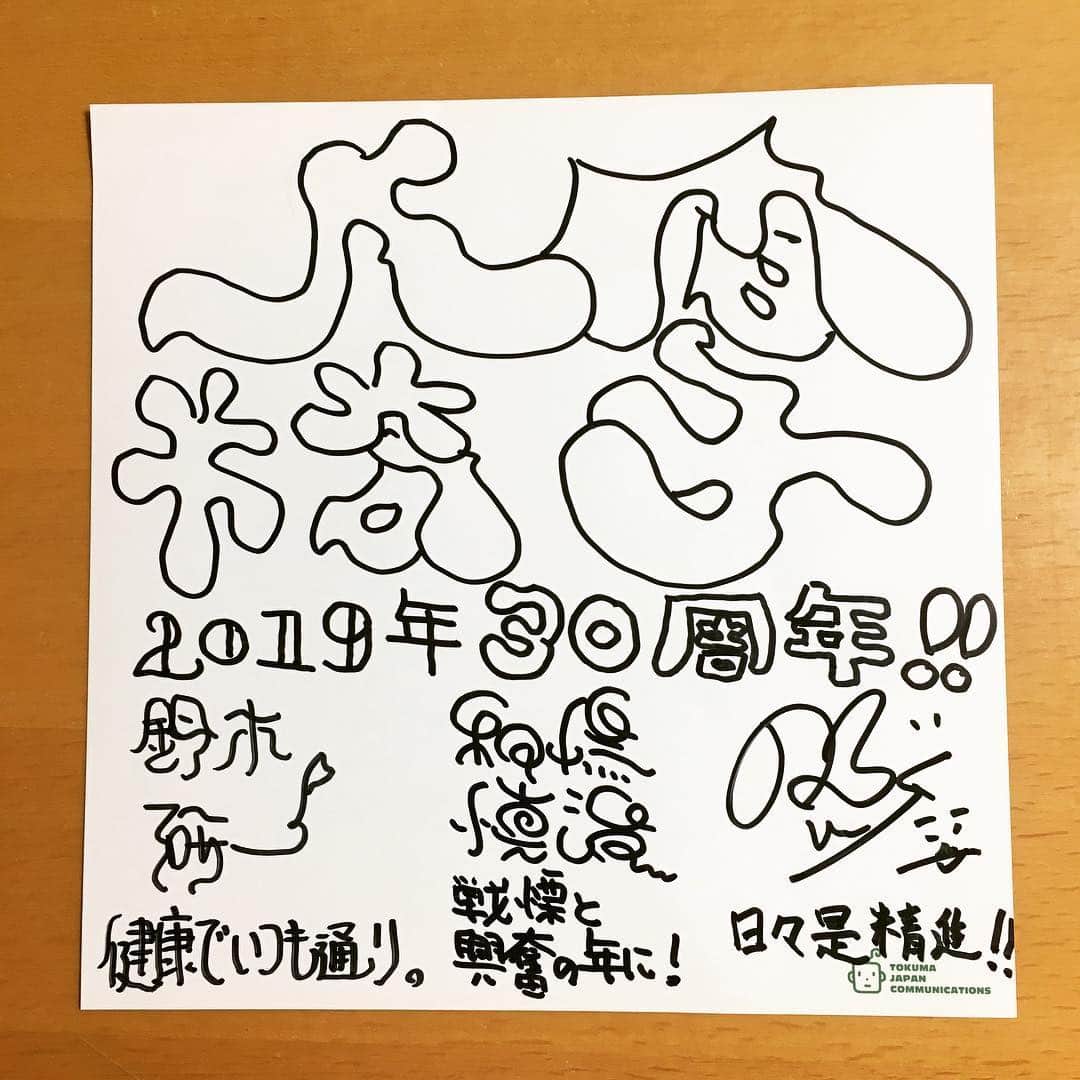 人間
椅子
2019年30周年!!
鈴木
研一
健康でいつも通り。
和嶋
慎治
戦慄と
興奮の年に!
日々是精進!!
TOKUMA
JAPAN
COMMUNICATIONS